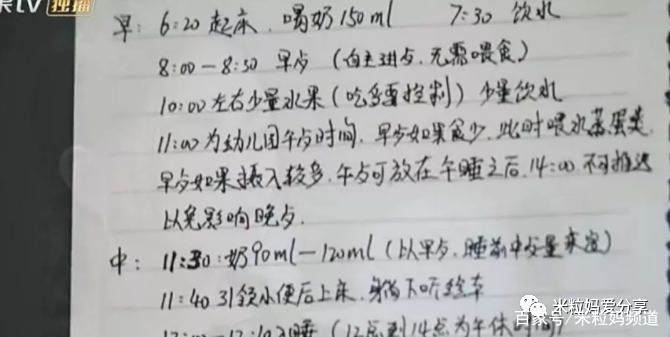 TV 独播
早: 6:20起床、喝奶150ml 7:30 饮水
8:00—8:30 早歺 (自主进歺,无需喂食)
10:00左右少量水果(吃多要控制) 少量饮水
11:00为幼儿园午歺时间,早歺如果食少,此时喂水蒸蛋类,
早歺如果摄入较多,午歺可放在午睡之后,14:00 不可推迟
以免影响晚歺.
中: 11:30:奶90ml—120ml(以早歺、睡前中歺量来定)
11:40 引领小便后上床,下听绘本
入睡 (12点到14点为午休时间)
米粒妈爱分享
百家号/米粒妈频道